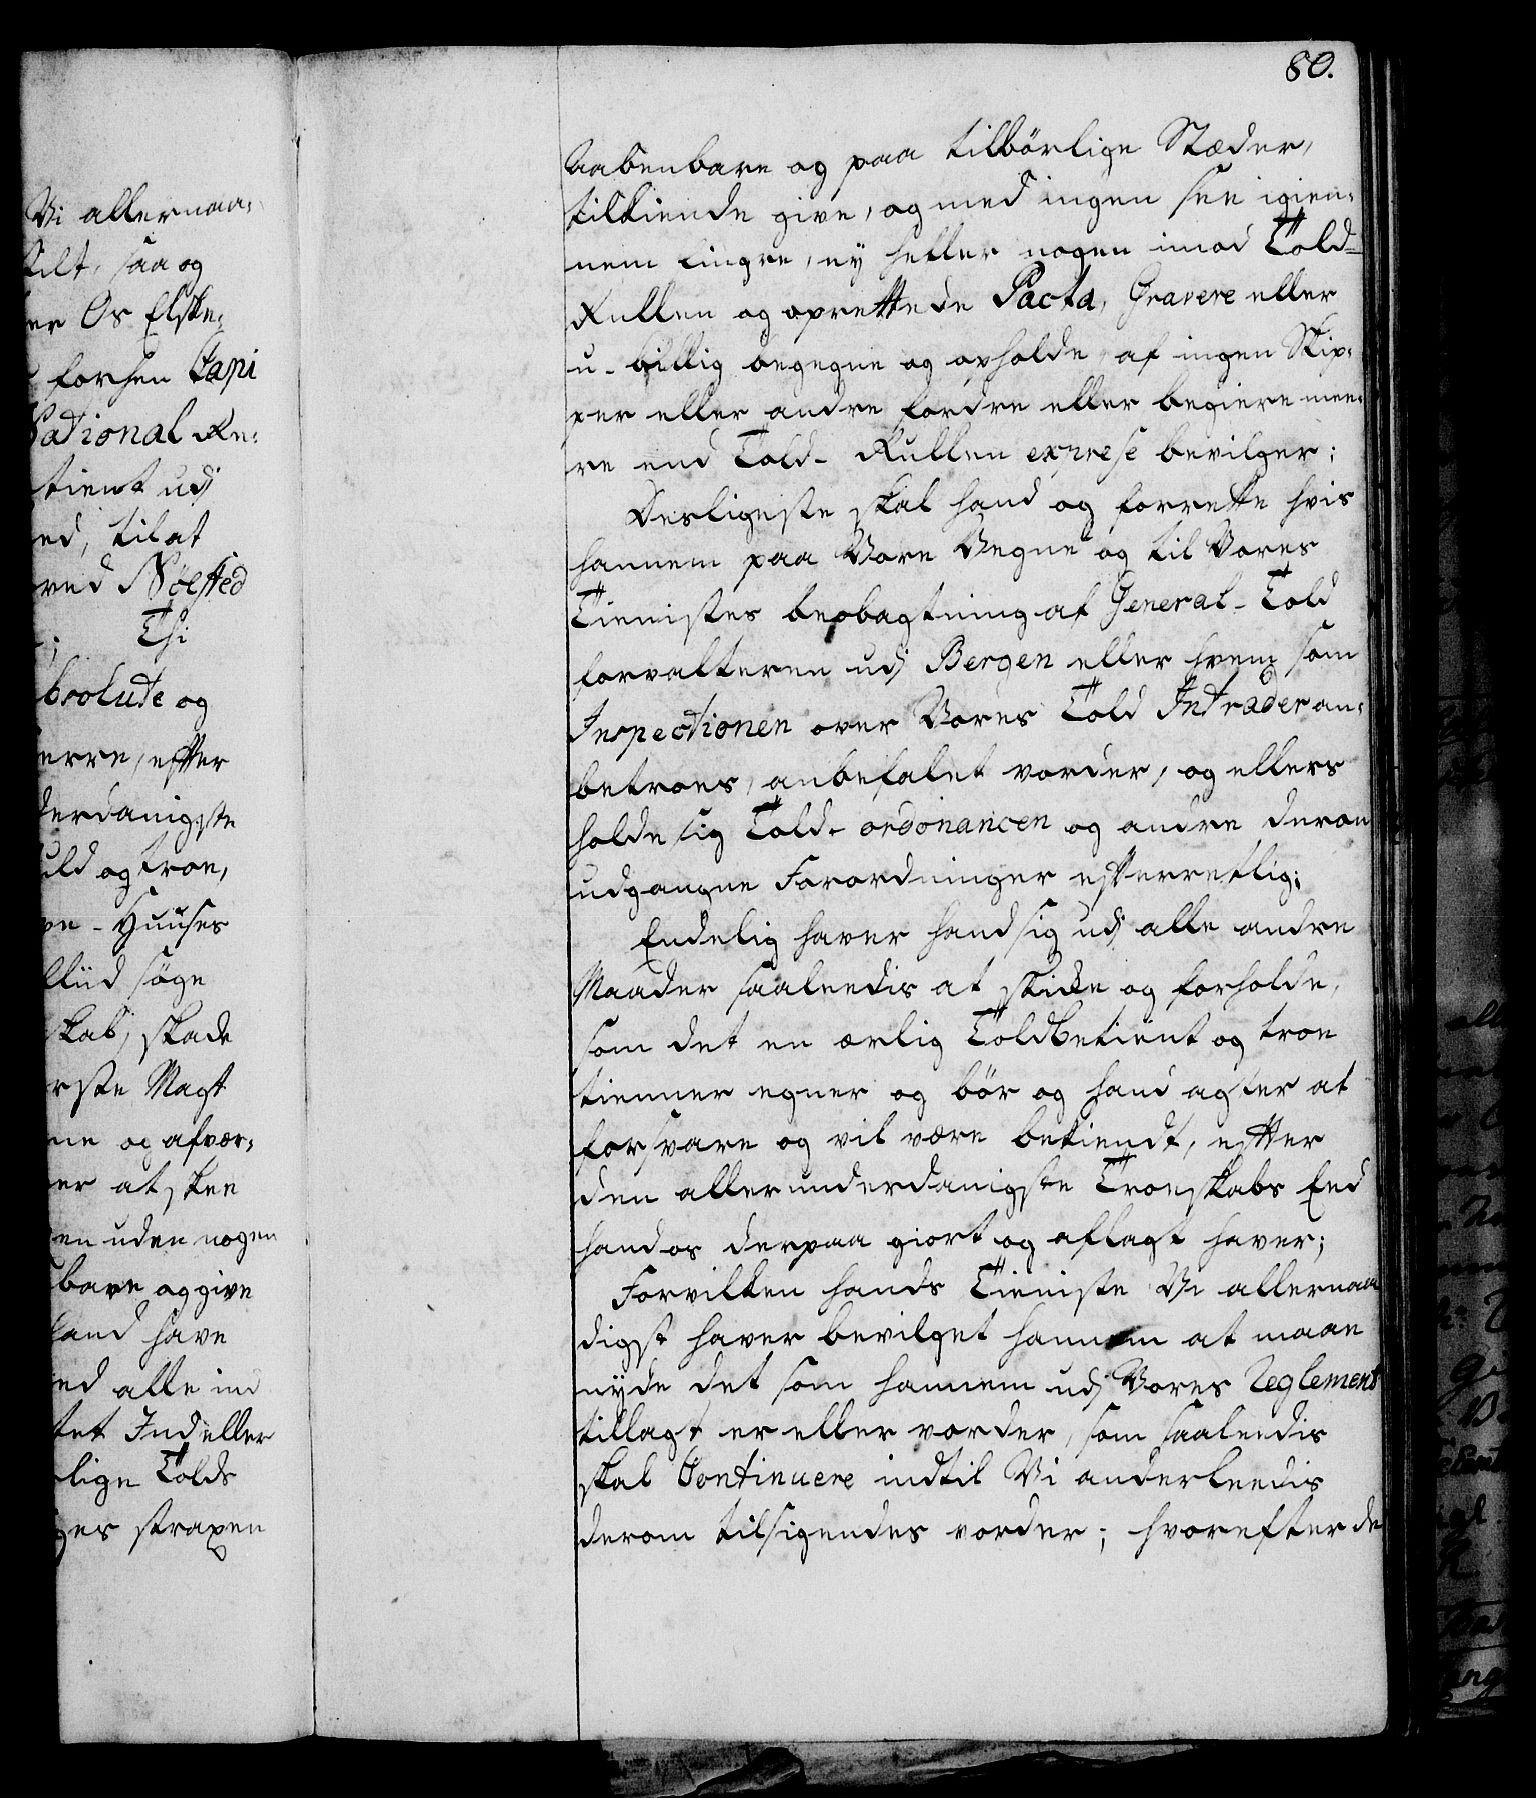 80.
Vi allernaa-
kilt, saa og
er Os Elske-
forhen Capi
National Re-
tient udj
ed, til at
ved Nöested
Thi
bsolute og
erre, effter
derdanigste
uld og troe,
ve-Huuses
lliid söge
skab, skade
rste Magt
ne og afvær-
er at skee
en uden nogen
bare og give
land have
ed alle ind
tet Ind eller
lige Tolds
ges straxen
aabenbare og paa tilbörlige Stæder,
tilkiende give, og med ingen see igien-
nem fingre, ey heller nogen imod Told-
Rullen og oprettede Pacta, Gravere eller
u-billig begegne og opholde, af ingen Skip-
per eller andre fordre eller begiere mee-
re end Told-Rullen exprese bevilger;
Desligeste skal hand og forrette hvis
hannem paa Vore Vegne og til Vores
Tienistes beobagtning af General-Told
forvalteren udj Bergen eller hvem som
Inspectionen over Vores Told Intrader an-
betroes, anbefalet vorder, og ellers
holde sig Told-ordonancen og andre derom
udgangne Forordninger efterretlig;
Endelig haver hand sig udj alle andre
Maader saaleedis at skicke og forholde,
som det en ærlig Toldbetient og troe
tienner egner og bör og hand agter at
forsvare og vil være bekiendt, effter
den allerunderdanigste Troeskabs Eed
hand os derpaa giort og aflagt haver;
Forvilken hands Tieniste Vi allernaa
digst haver bevilget hannem at maae
nyde det som hannem udj Vores Reglement
tillagt er eller vorder, som saaleedis
skal Continuere indtil Vi anderleedis
derom tilsigendes vorder; hvorefter de